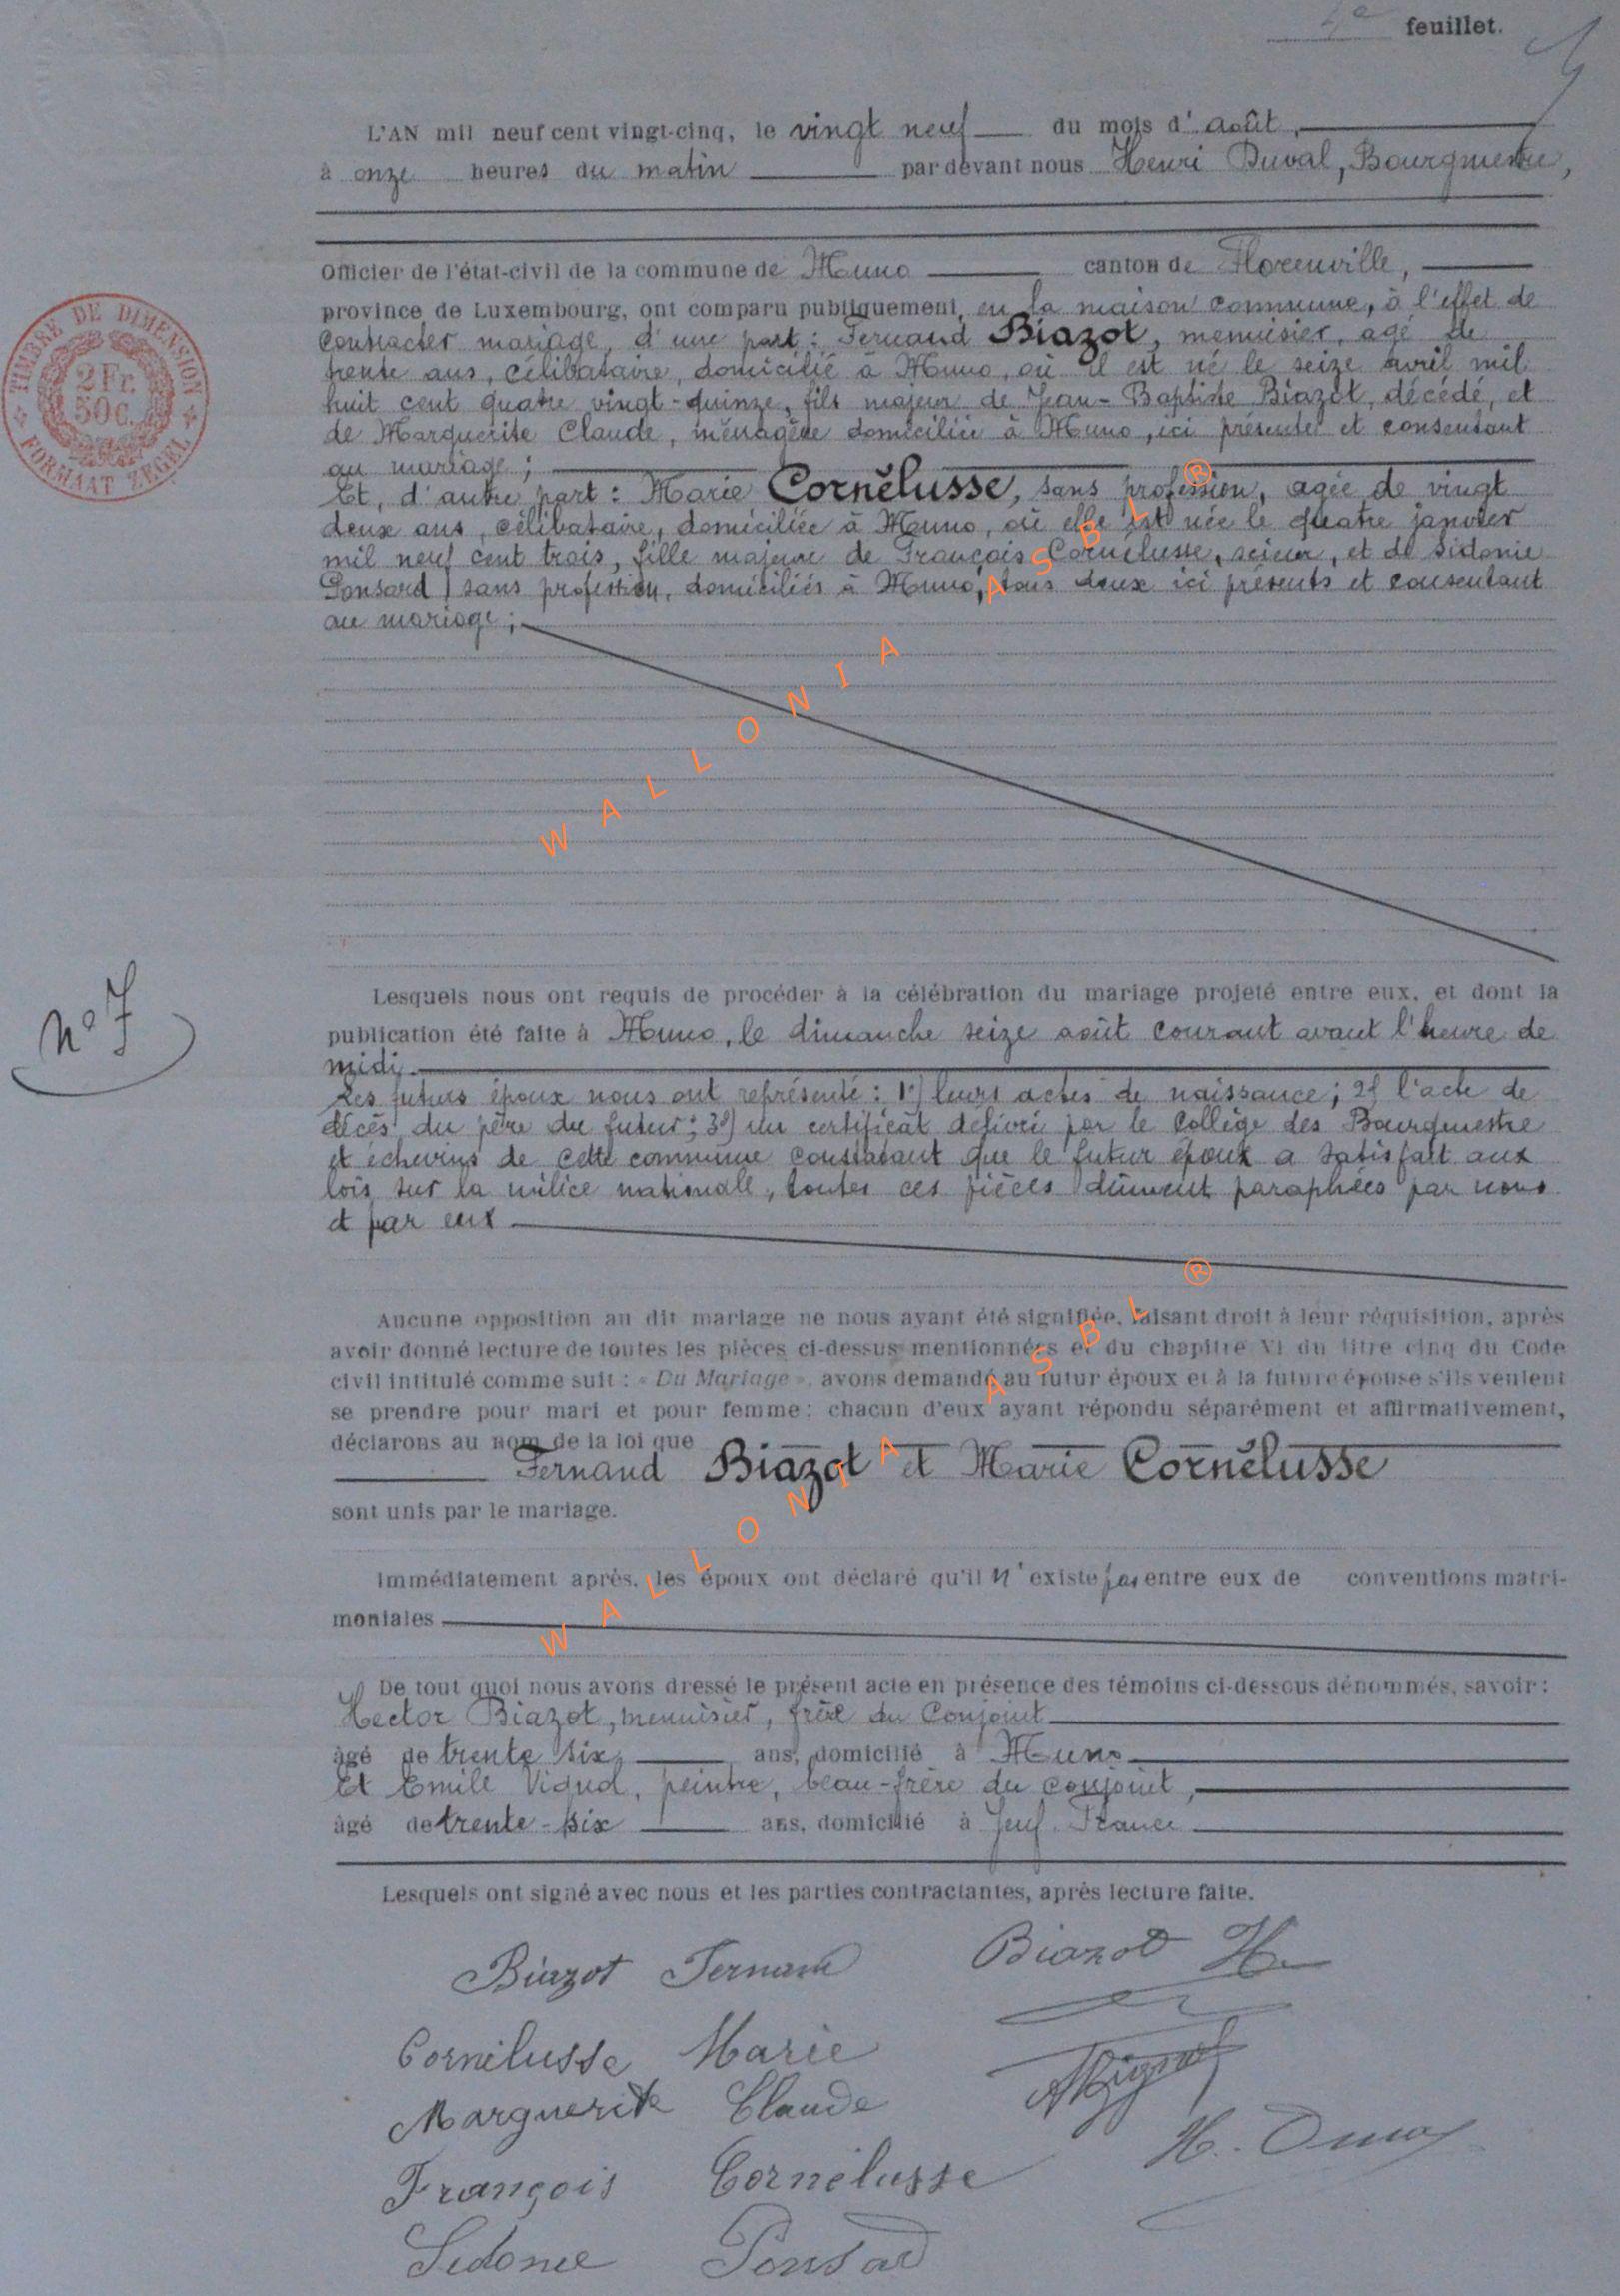 4e feuillet.
L'AN mil neuf cent vingt-cinq, le vingt neuf du mois d'août,
à onze heures du matin par devant nous Henri Duval, Bourgmestre,
Officier de l'état-civil de la commune de Muno canton de Florenville,
province de Luxembourg, ont comparu publiquement, en la maison commune, à l'effet de
contracter mariage, d'une part : Fernand Biazot, menuisier, agé de
trente ans, célibataire, domicilié à Muno, où il est né le seize avril mil
huit cent quatre vingt-quinze, fils majeur de Jean-Baptiste Biazot, décédé, et
de Marguerite Claude, ménagère domiciliée à Muno, ici présente et consentant
au mariage ;
Et, d'autre part : Marie Cornélusse, sans profession, agée de vingt
deux ans, célibataire, domiciliée à Muno, où elle est née le quatre janvier
mil neuf cent trois, fille majeure de François Cornélusse, scieur, et de Sidonie
Ponsard, sans profession, domiciliés à Muno, tous deux ici présents et consentant
au mariage ;
TIMBRE DE DIMENSION
2 Fr.
50 c.
FORMAAT ZEGEL
WALLONIA ASBL ®
n° 7
Lesquels nous ont requis de procéder à la célébration du mariage projeté entre eux, et dont la
publication été faite à Muno, le dimanche seize août courant avant l'heure de
midi.
Les futurs époux nous ont représenté : 1°) leurs actes de naissance ; 2°) l'acte de
décès du père du futur ; 3°) un certificat délivré par le Collège des Bourgmestre
et échevins de cette commune constatant que le futur époux a satisfait aux
lois sur la milice nationale, toutes ces pièces dûment paraphées par nous
et par eux
Aucune opposition au dit mariage ne nous ayant été signifiée, faisant droit à leur réquisition, après
avoir donné lecture de toutes les pièces ci-dessus mentionnées et du chapitre VI du titre cinq du Code
civil intitulé comme suit : « Du Mariage », avons demandé au futur époux et à la future épouse s'ils veulent
se prendre pour mari et pour femme ; chacun d'eux ayant répondu séparément et affirmativement,
déclarons au nom de la loi que
Fernand Biazot et Marie Cornélusse
sont unis par le mariage.
WALLONIA ASBL ®
Immédiatement après, les époux ont déclaré qu'il n'existe pas entre eux de conventions matri-
moniales
De tout quoi nous avons dressé le présent acte en présence des témoins ci-dessous dénommés, savoir :
Hector Biazot, menuisier, frère du Conjoint
âgé de trente six ans, domicilié à Muno
Et Emile Vignol, peintre, beau-frère du conjoint,
âgé de trente-six ans, domicilié à Jeuf France
Lesquels ont signé avec nous et les parties contractantes, après lecture faite.
Biazot Fernand Biazot H
Cornélusse Marie
Marguerite Claude
H. Duval
François Cornélusse
Sidonie Ponsard